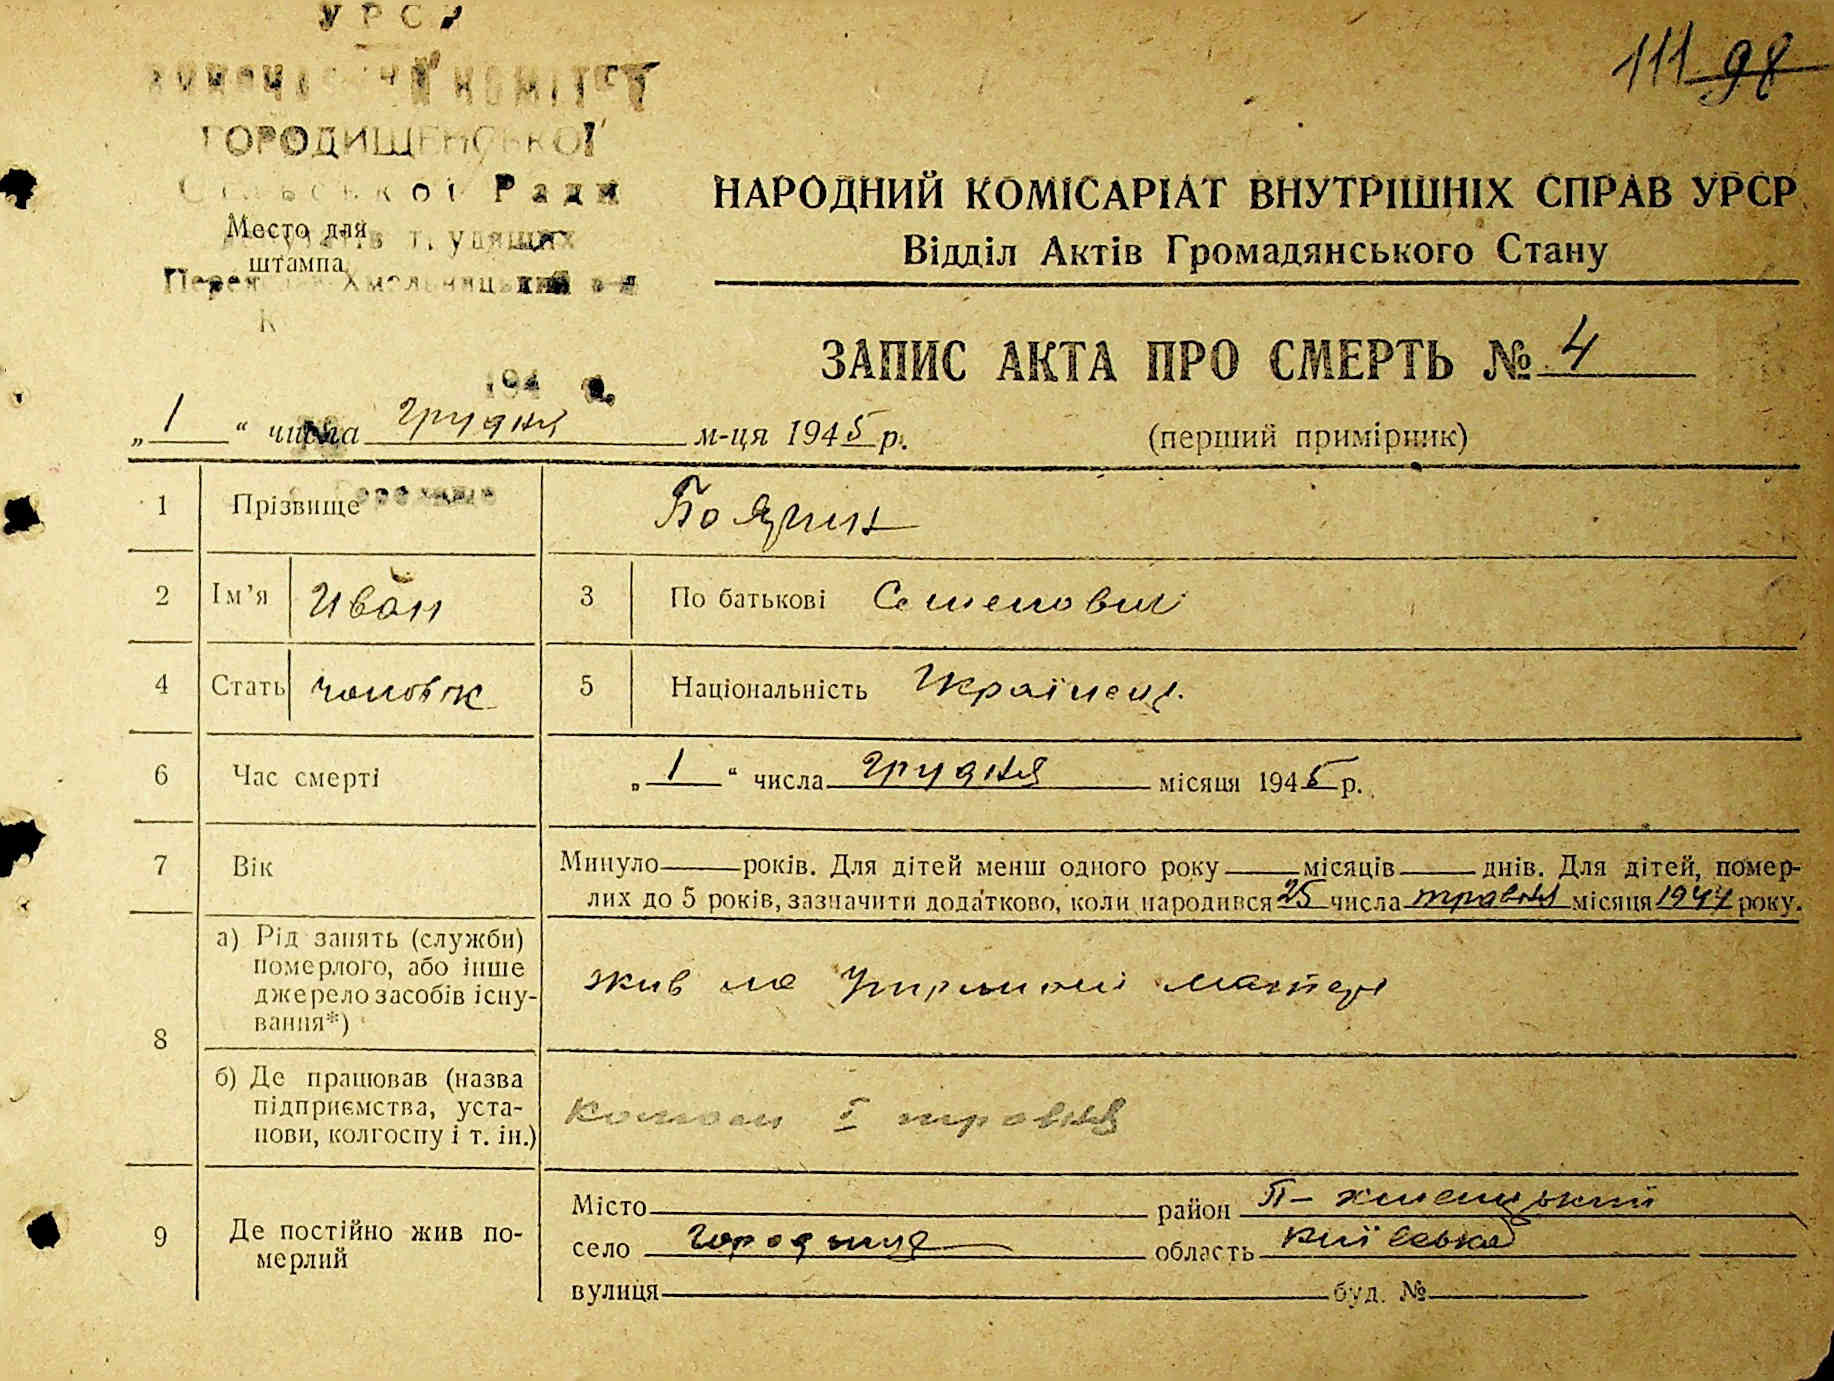 УРСР
ВИКОНАВЧИЙ КОМІТЕТ
ГОРОДИЩЕНСЬКОЇ
Сільської Ради
Место для
штампа
трудящих
Хмельницький р-н
К
194 р.
111 98
НАРОДНИЙ КОМІСАРІАТ ВНУТРІШНІХ СПРАВ УРСР
Відділ Актів Громадянського Стану
ЗАПИС АКТА ПРО СМЕРТЬ № 4
„1“ числа грудня м-ця 1945 р.
(перший примірник)
1 Прізвище Боярин
2 Ім’я Иван 3 По батькові Семенович
4 Стать чоловік 5 Національність Українець
6 Час смерті „1“ числа грудня місяця 1945 р.
7 Вік Минуло років. Для дітей менш одного року місяців днів. Для дітей, помер-
лих до 5 років, зазначити додатково, коли народився 25 числа травня місяця 1944 року.
8 а) Рід занять (служби)
померлого, або інше
джерело засобів існу-
вання*)
жив на утриманні матері
б) Де працював (назва
підприємства, уста-
нови, колгоспу і т. ін.)
колгосп І травня
9 Де постійно жив по-
мерлий
Місто район П-Хмельницький
село Городище область Київська
вулиця буд. №